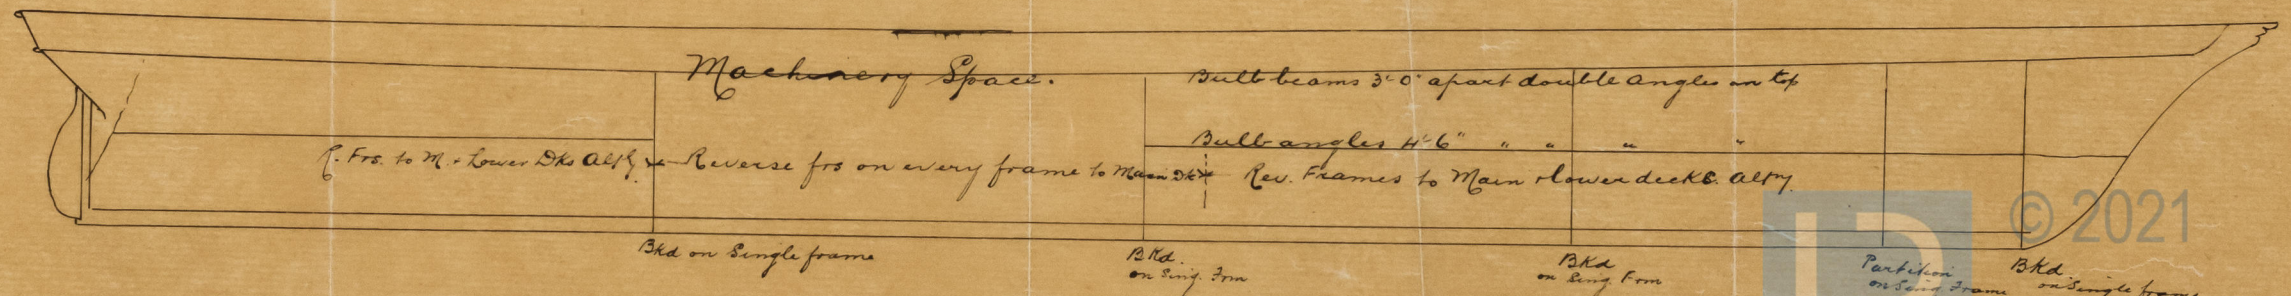 Machinery Space.
Bulb beams 3'-0" apart double angles on top
Bulb angles 4'-6" " " " "
R. Frs. to M. & Lower Dks Altly
Reverse frs on every frame to Main Dk
Rev. Frames to Main & lower decks. Altly.
Bkd on Single frame
BKd.
on Sing. Frm
BKd
on Sing. Frm
Partition
on Sing Frame
BKd.
on Single frame
© 2021